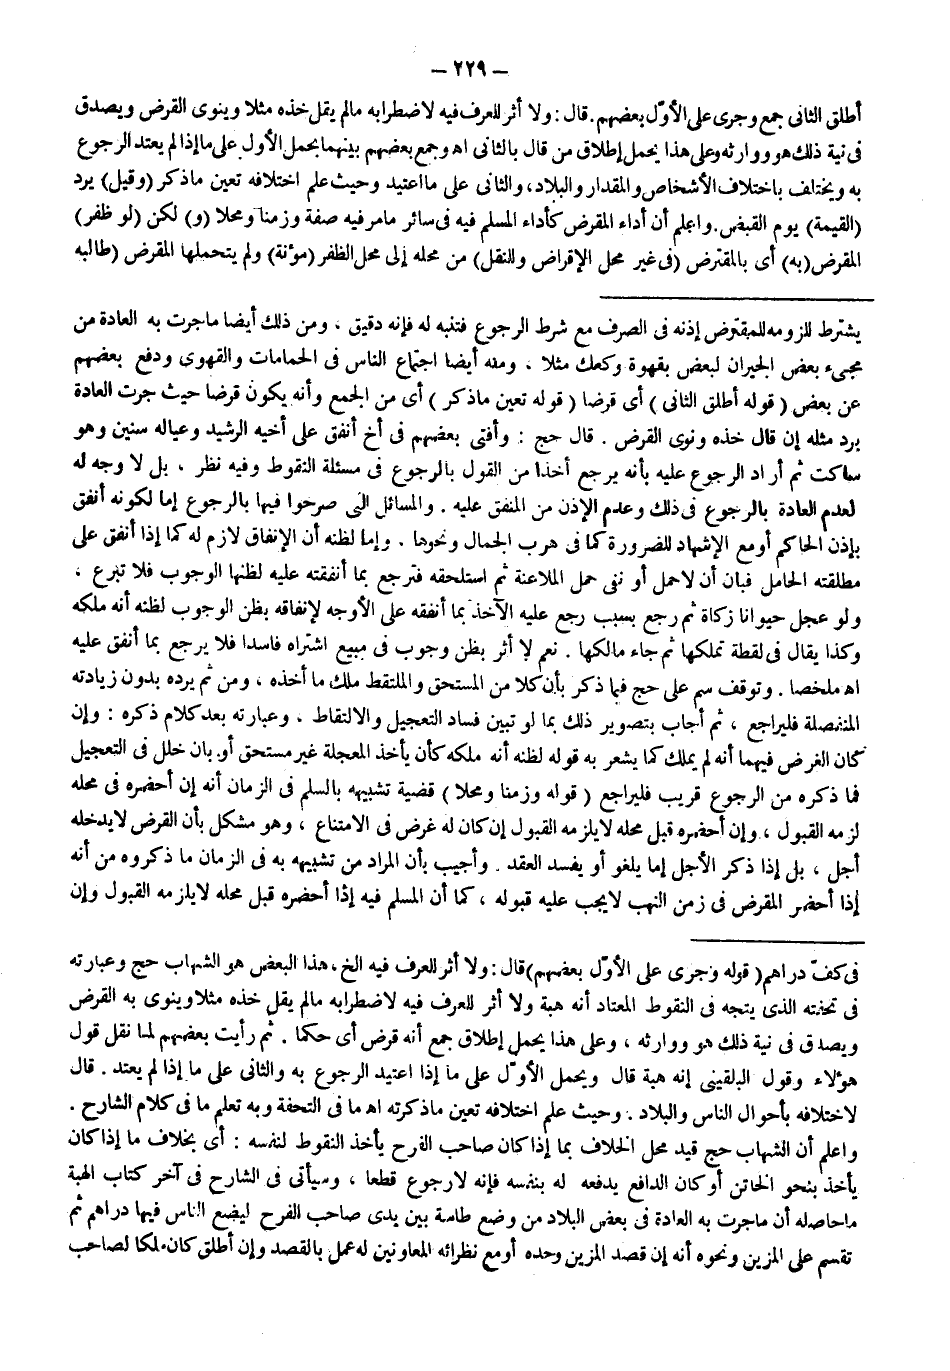 – ٢٢٩ –
أطلق الثانى جمع وجرى على الأوّل بعضهم. قال : ولا أثر للعرف فيه لاضطرابه مالم يقل خذه مثلا وينوى القرض ويصدق
فى نية ذلك هو ووارثه وعلى هذا يحمل إطلاق من قال بالثانى اه وجمع بعضهم بينهما بحمل الأول على ما إذا لم يعتد الرجوع
به ويختلف باختلاف الأشخاص والمقدار والبلاد، والثانى على ما اعتيد وحيث علم اختلافه تعين ماذكر (وقيل) يرد
(القيمة) يوم القبض. واعلم أن أداء المقرض كأداء المسلم فيه فى سائر مامر فيه صفة وزمنا ومحلا (و) لكن (لو ظفر)
المقرض (به) أى بالمقترض (فى غير محل الإقراض وللنقل) من محله إلى محل الظفر (مؤنة) ولم يتحملها المقرض (طالبه
يشترط للزومه للمقترض إذنه فى الصرف مع شرط الرجوع فتنبه له فإنه دقيق ، ومن ذلك أيضا ماجرت به العادة من
مجىء بعض الجيران لبعض بقهوة وكعك مثلا ، ومنه أيضا اجتماع الناس فى الحمامات والقهوى ودفع بعضهم
عن بعض ( قوله أطلق الثانى ) أى قرضا ( قوله تعين ماذكر ) أى من الجمع وأنه يكون قرضا حيث جرت العادة
برد مثله إن قال خذه ونوى القرض . قال حج : وأفتى بعضهم فى أخ أنفق على أخيه الرشيد وعياله سنين وهو
ساكت ثم أراد الرجوع عليه بأنه يرجع أخذا من القول بالرجوع فى مسئلة النقوط وفيه نظر ، بل لا وجه له
لعدم العادة بالرجوع فى ذلك وعدم الإذن من المنفق عليه . والمسائل التى صرحوا فيها بالرجوع إما لكونه أنفق
بإذن الحاكم أو مع الإشهاد للضرورة كما فى هرب الجمال ونحوها . وإما لظنه أن الإنفاق لازم له كما إذا أنفق على
مطلقته الحامل فبان أن لاحمل أو نفى حمل الملاعنة ثم استلحقه فترجع بما أنفقته عليه لظنها الوجوب فلا تبرع ،
ولو عجل حيوانا زكاة ثم رجع بسبب رجع عليه الآخذ بما أنفقه على الأوجه لإنفاقه بظن الوجوب لظنه أنه ملكه
وكذا يقال فى لقطة تملكها ثم جاء مالكها . نعم لا أثر بظن وجوب فى مبيع اشتراه فاسدا فلا يرجع بما أنفق عليه
اه ملخصا . وتوقف سم على حج فيما ذكر بأن كلا من المستحق والملتقط ملك ما أخذه ، ومن ثم يرده بدون زيادته
المنفصلة فليراجع ، ثم أجاب بتصوير ذلك بما لو تبين فساد التعجيل والالتقاط ، وعبارته بعد كلام ذكره : وإن
كان الغرض فيهما أنه لم يملك كما يشعر به قوله لظنه أنه ملكه كأن يأخذ المعجلة غير مستحق أو بان خلل فى التعجيل
فما ذكره من الرجوع قريب فليراجع ( قوله وزمنا ومحلا ) قضية تشبيهه بالسلم فى الزمان أنه إن أحضره فى محله
لزمه القبول ، وإن أحضره قبل محله لايلزمه القبول إن كان له غرض فى الامتناع ، وهو مشكل بأن القرض لايدخله
أجل ، بل إذا ذكر الأجل إما يلغو أو يفسد العقد . وأجيب بأن المراد من تشبيهه به فى الزمان ما ذكروه من أنه
إذا أحضر المقرض فى زمن النهب لايجب عليه قبوله ، كما أن المسلم فيه إذا أحضره قبل محله لايلزمه القبول وإن
فى كفّ دراهم( قوله وجرى على الأوّل بعضهم)قال : ولا أثر للعرف فيه الخ ، هذا البعض هو الشهاب حج وعبارته
فى تحفته الذى يتجه فى النقوط المعتاد أنه هبة ولا أثر للعرف فيه لاضطرابه مالم يقل خذه مثلا وينوى به القرض
ويصدق فى نية ذلك هو ووارثه ، وعلى هذا يحمل إطلاق جمع أنه قرض أى حكما . ثم رأيت بعضهم لما نقل قول
هؤلاء وقول البلقينى إنه هبة قال ويحمل الأوّل على ما إذا اعتيد الرجوع به والثانى على ما إذا لم يعتد . قال
لاختلافه بأحوال الناس والبلاد . وحيث علم اختلافه تعين ماذكرته اه ما فى التحفة وبه تعلم ما فى كلام الشارح .
واعلم أن الشهاب حج قيد محل الخلاف بما إذا كان صاحب الفرح يأخذ النقوط لنفسه : أى بخلاف ما إذا كان
يأخذ بنحو الخاتن أو كان الدافع يدفعه له بنفسه فإنه لارجوع قطعا ، وسيأتى فى الشارح فى آخر كتاب الهبة
ماحاصله أن ماجرت به العادة فى بعض البلاد من وضع طاسة بين يدى صاحب الفرح ليضع الناس فيها دراهم ثم
تقسم على المزين ونحوه أنه إن قصد المزين وحده أو مع نظرائه المعاونين له عمل بالقصد وإن أطلق كان ملكا لصاحب